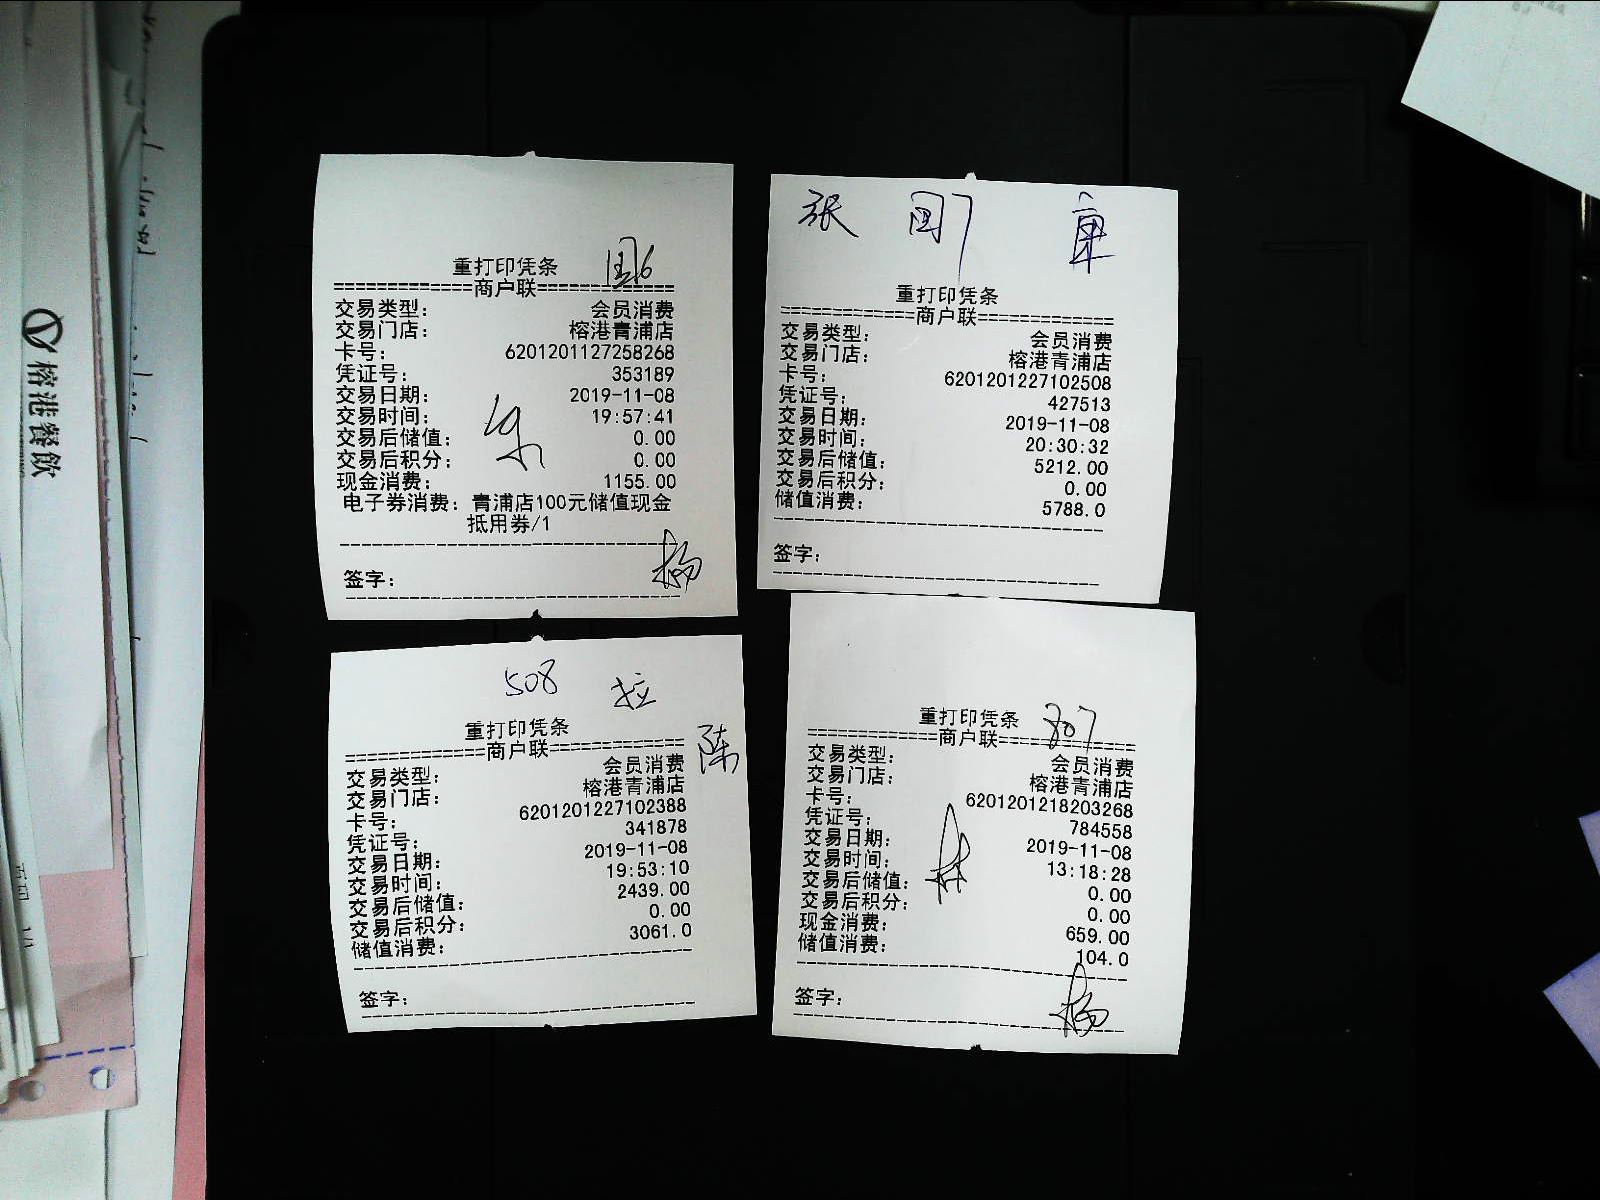 榕港餐飲
重打印凭条
============商户联============
交易类型： 会员消费
交易门店： 榕港青浦店
卡号： 6201201127258268
凭证号： 353189
交易日期： 2019-11-08
交易时间： 19:57:41
交易后储值： 0.00
交易后积分： 0.00
现金消费： 1155.00
电子券消费：青浦店100元储值现金
抵用券/1
签字：
杨
张 国7
重打印凭条
============商户联============
交易类型： 会员消费
交易门店： 榕港青浦店
卡号： 6201201227102508
凭证号： 427513
交易日期： 2019-11-08
交易时间： 20:30:32
交易后储值： 5212.00
交易后积分： 0.00
储值消费： 5788.0
签字：
508
陈
重打印凭条
============商户联============
交易类型： 会员消费
交易门店： 榕港青浦店
卡号： 6201201227102388
凭证号： 341878
交易日期： 2019-11-08
交易时间： 19:53:10
交易后储值： 2439.00
交易后积分： 0.00
储值消费： 3061.0
签字：
重打印凭条 807
============商户联============
交易类型： 会员消费
交易门店： 榕港青浦店
卡号： 6201201218203268
凭证号： 784558
交易日期： 2019-11-08
交易时间： 13:18:28
交易后储值： 0.00
交易后积分： 0.00
现金消费： 659.00
储值消费： 104.0
签字：
杨